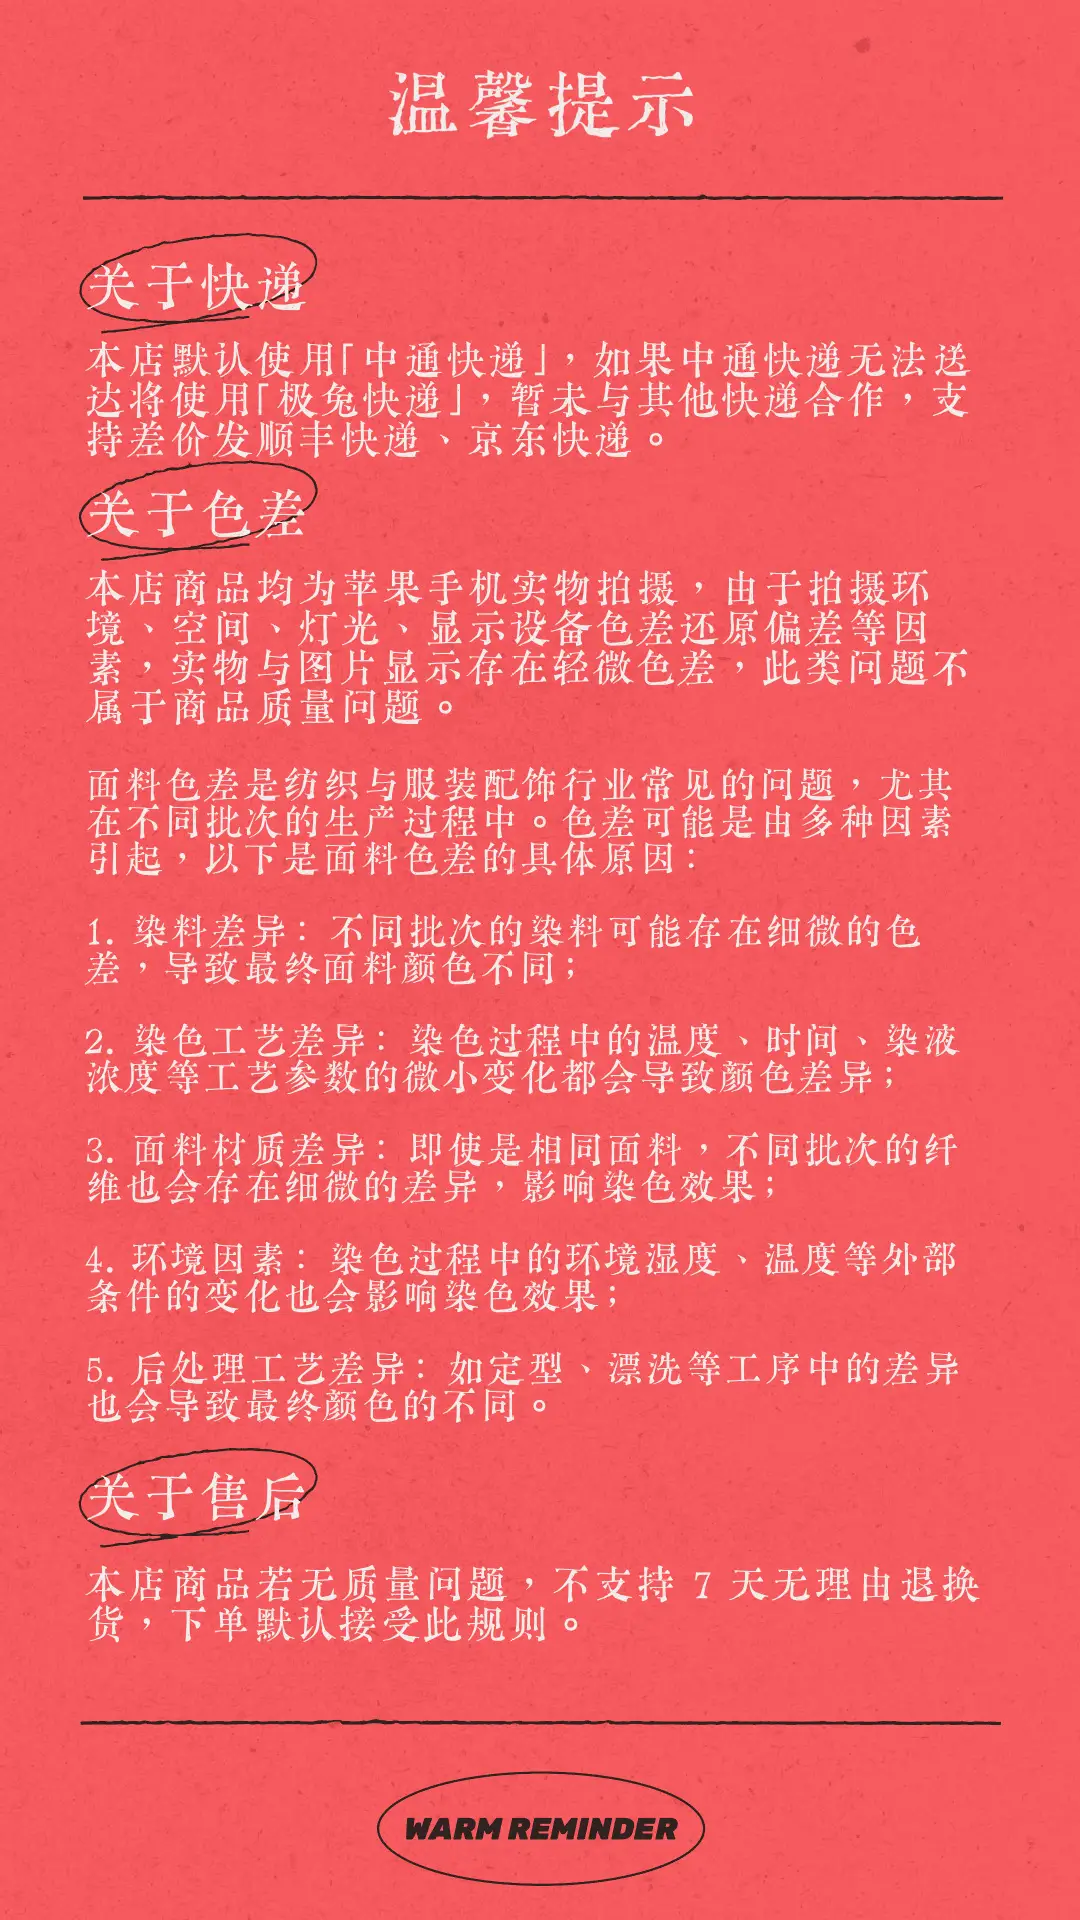 温馨提示
关于快递
本店默认使用「中通快递」，如果中通快递无法送
达将使用「极兔快递」，暂未与其他快递合作，支
持差价发顺丰快递、京东快递。
关于色差
本店商品均为苹果手机实物拍摄，由于拍摄环
境、空间、灯光、显示设备色差还原偏差等因
素，实物与图片显示存在轻微色差，此类问题不
属于商品质量问题。
面料色差是纺织与服装配饰行业常见的问题，尤其
在不同批次的生产过程中。色差可能是由多种因素
引起，以下是面料色差的具体原因：
1. 染料差异：不同批次的染料可能存在细微的色
差，导致最终面料颜色不同；
2. 染色工艺差异：染色过程中的温度、时间、染液
浓度等工艺参数的微小变化都会导致颜色差异；
3. 面料材质差异：即使是相同面料，不同批次的纤
维也会存在细微的差异，影响染色效果；
4. 环境因素：染色过程中的环境湿度、温度等外部
条件的变化也会影响染色效果；
5. 后处理工艺差异：如定型、漂洗等工序中的差异
也会导致最终颜色的不同。
关于售后
本店商品若无质量问题，不支持 7 天无理由退换
货，下单默认接受此规则。
WARM REMINDER